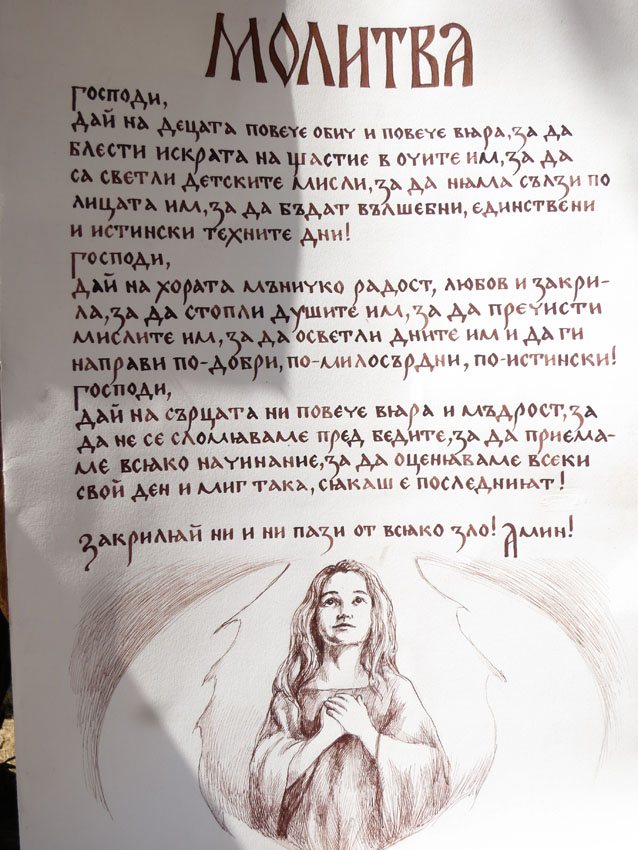 МОЛИТВА
Господи,
дай на децата повече обич и повече вяра, за да
блести искрата на щастие в очите им, за да
са светли детските мисли, за да няма сълзи по
лицата им, за да бъдат вълшебни, единствени
и истински техните дни!
Господи,
дай на хората мъничко радост, любов и закри-
ла, за да стопли душите им, за да пречисти
мислите им, за да осветли дните им и да ги
направи по-добри, по-милосърдни, по-истински!
Господи,
дай на сърцата ни повече вяра и мъдрост, за
да не се сломяваме пред бедите, за да приема-
ме всяко начинание, за да оценяваме всеки
свой ден и миг така, сякаш е последният!
Закриляй ни и ни пази от всяко зло! Амин!